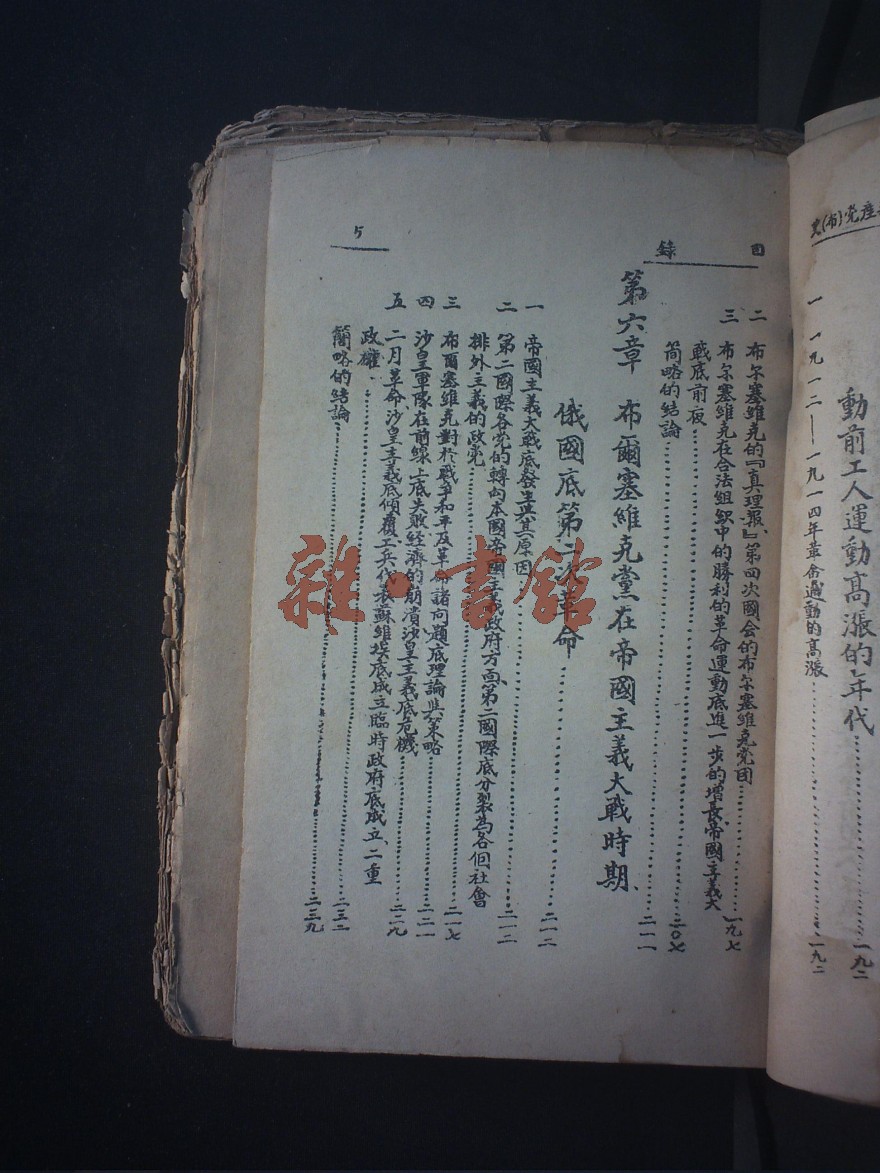 產党(布)史
動前工人運動高漲的年代……一九二
一 一九一二——一九一四年革命運動的高漲……一九二
目錄
二 布尔塞維克的『真理報』、第四次國会的布尔塞維克党团……一九七
三 布尔塞維克在合法組織中的勝利的革命運動底進一步的增長、帝國主義大
戰底前夜
简略的結論……二〇七
第六章 布爾塞維克党在帝國主義大戰時期、
俄國底第二次革命……二一一
一 帝國主義大戰底發生與其原因……二一二
二 第二國際各党的轉向本國帝國主義政府方面、第二國際底分裂為各個社會
排外主義的政党……二一二
三 布爾塞維克對於戰爭和平及革命諸问題底理論與策略……二一七
四 沙皇軍隊在前線上底失敗經濟的崩潰沙皇主義底危機……二二一
五 二月革命、沙皇主義底傾覆、工兵代表蘇維埃底成立、臨時政府底成立、二重
政權……二二九
簡略的結論……二三二
二三九
5
雜·書館